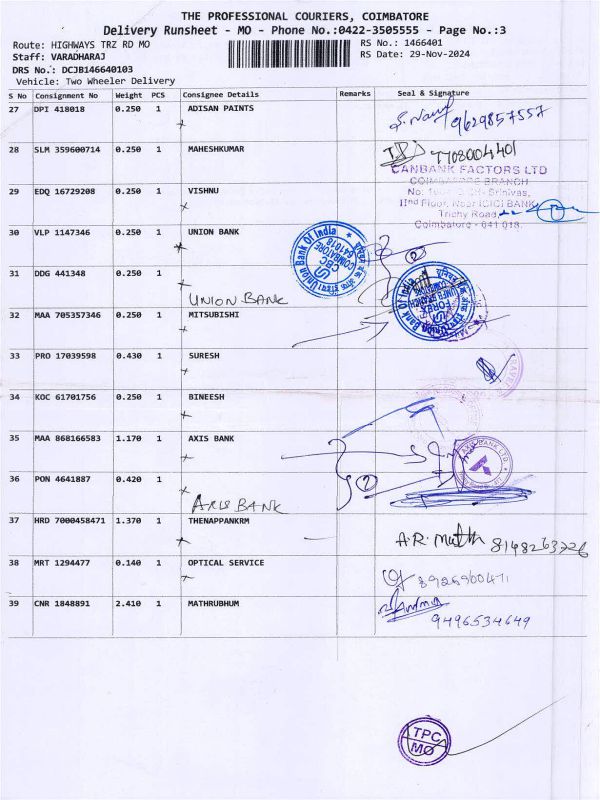 THE PROFESSIONAL COURIERS, COIMBATORE
Delivery Runsheet - MO - Phone No.:0422-3505555 - Page No.:3
Route: HIGHWAYS TRZ RD MO RS No.: 1466401
Staff: VARADHARAJ RS Date: 29-Nov-2024
DRS No.: DCJB146640103
Vehicle: Two Wheeler Delivery
S No Consignment No Weight PCS Consignee Details Remarks Seal & Signature
27 DPI 418018 0.250 1 ADISAN PAINTS
9629857557
28 SLM 359600714 0.250 1 MAHESHKUMAR
7708004401
CANBANK FACTORS LTD
COIMBATORE BRANCH
29 EDQ 16729208 0.250 1 VISHNU
IInd Floor, Near ICICI BANK
Trichy Road
Coimbatore - 641 018.
30 VLP 1147346 0.250 1 UNION BANK
Union Bank Of India
COIMBATORE
641018
CBC
2
31 DDG 441348 0.250 1
UNION BANK
Union Bank Of India
FOREX
32 MAA 705357346 0.250 1 MITSUBISHI
33 PRO 17039598 0.430 1 SURESH
34 KOC 61701756 0.250 1 BINEESH
35 MAA 868166583 1.170 1 AXIS BANK
AXIS BANK LTD
36 PON 4641887 0.420 1
AXIS BANK
37 HRD 7000458471 1.370 1 THENAPPANKRM
A.R. 8148263726
38 MRT 1294477 0.140 1 OPTICAL SERVICE
39 CNR 1848891 2.410 1 MATHRUBHUM
9496534649
TPC
MO